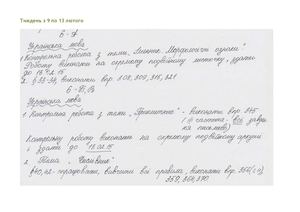 Тиждень з 9 по 13 лютого
6-А
Українська мова
1 Контрольна робота з теми „Лексика. Морфологічні ознаки"
Роботу виконати на окремому подвійному листочку, здати
до 18.02.15
2. § 33-34, виконати впр. 308, 309, 316, 321
6-Б, В
Українська мова
1 Контрольна робота з теми „Прикметник" - виконати впр. 345
(І частина - всі завдання
письмово)
Контрольну роботу виконати на окремому подвійному аркуші
і здати до 18.02.15
2 Тема „Числівник"
§40,42 - опрацювати, вивчити всі правила, виконати впр.
359, 364, 370